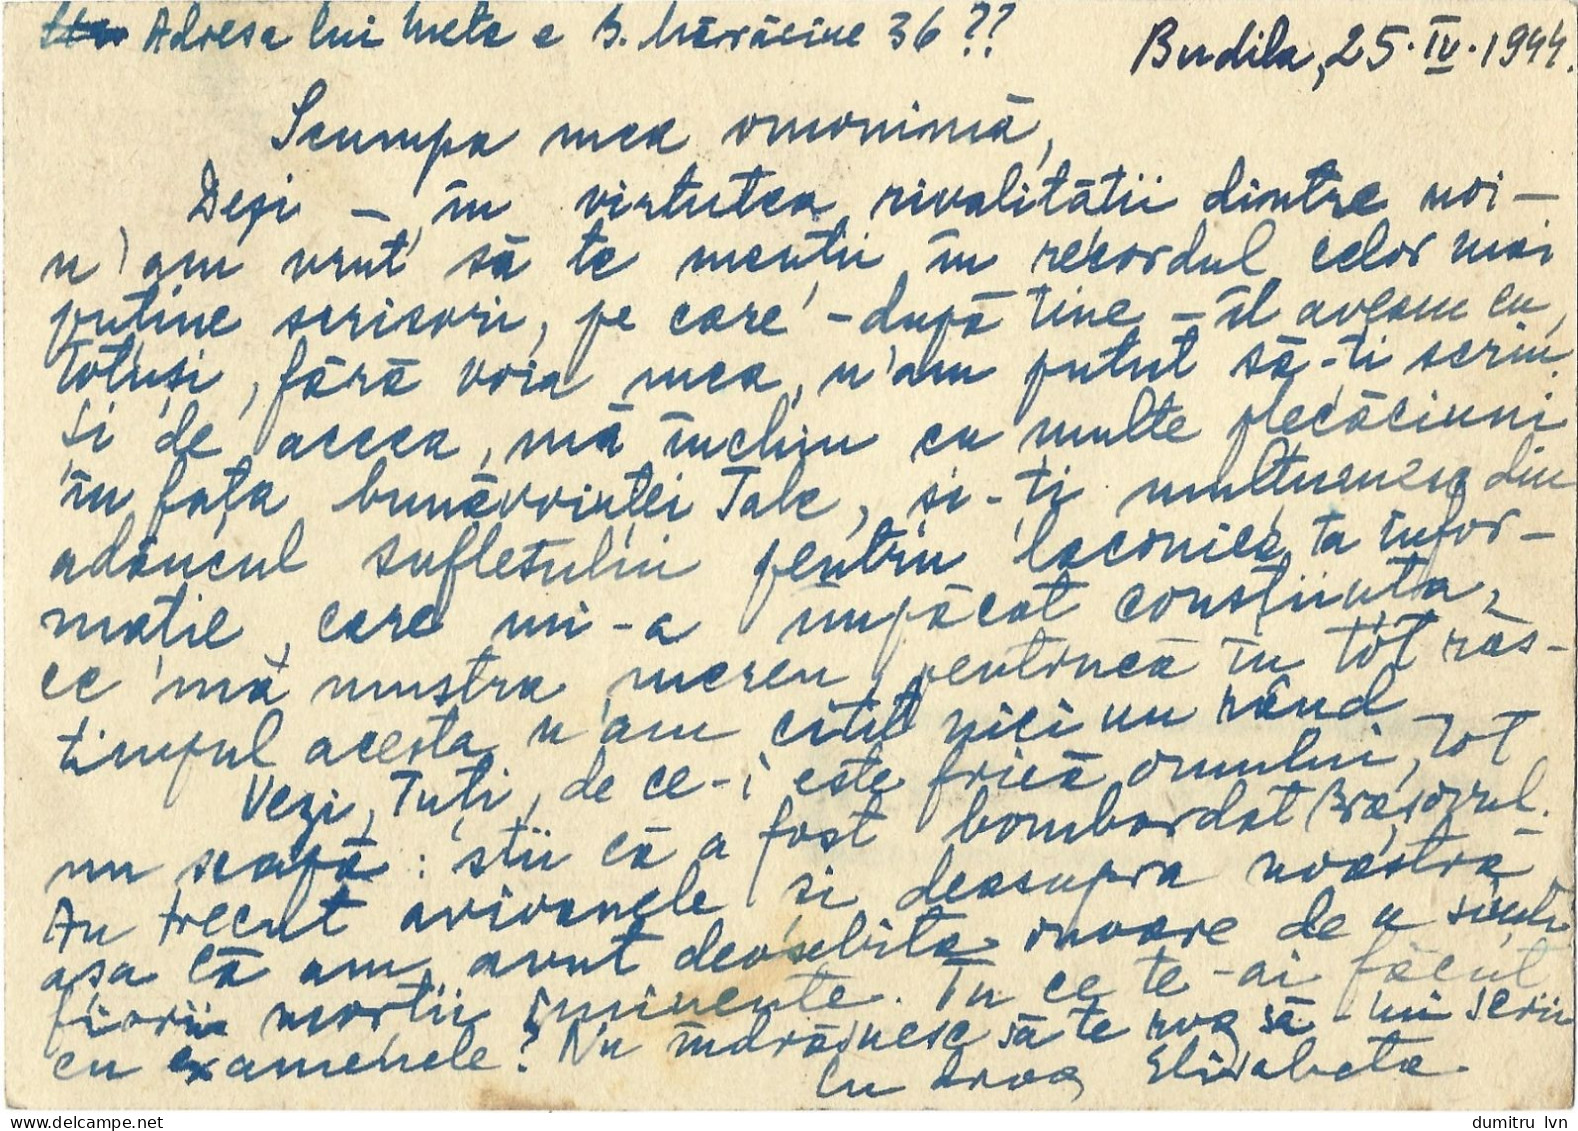 Adresa lui Meta e B. Mărăcine 36 ??
Budila, 25.IV.1944.
Scumpa mea omonimă,
Deși – în virtutea rivalității dintre noi –
n'am vrut să te mențiu în recordul celor mai
puține scrisori, pe care – după tine – îl aveam eu,
totuși, fără voia mea, n'am putut să-ți scriu.
Și de aceea, mă închin cu multe plecăciuni
în fața bunăvoinței Tale, și-ți mulțumesc din
adâncul sufletului pentru laconica ta infor-
mație, care mi-a împăcat conștiința,
ce mă mustra mereu, pentrucă în tot răs-
timpul acesta n'am citit nici un rând.
Vezi, Tuți, de ce-i este frică omului, tot
nu scapă: știi că a fost bombardat Brașovul.
Au trecut avioanele și deasupra noastră
așa că am avut deosebita onoare de a simți
fiorii morții iminente. Tu ce te-ai făcut
cu examenele? Nu îndrăsnesc să te rog să-mi scrii
Cu drag Elisabeta.
dumitru lvn